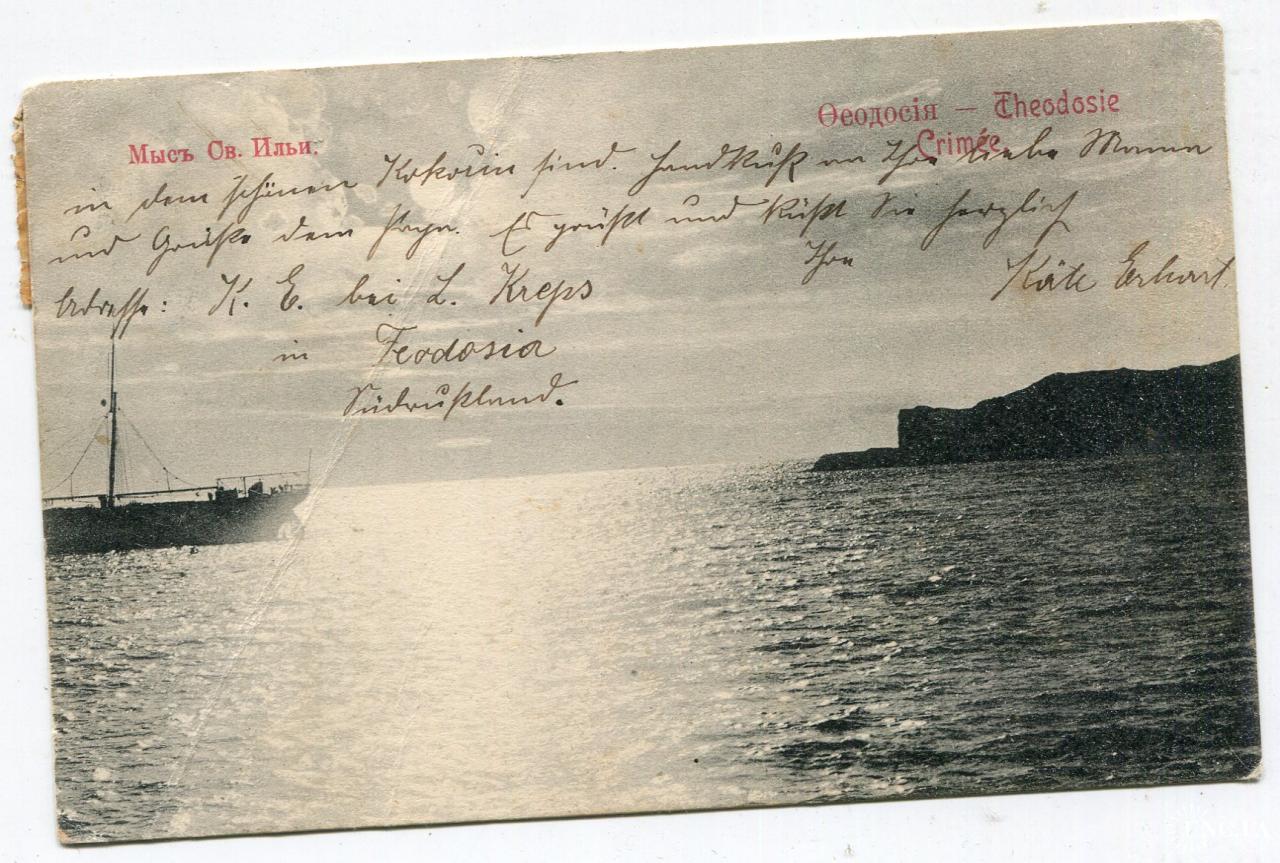 Мысъ Св. Ильи.
Ѳеодосія — Theodosie
Crimée
in dem schönen Kokořin sind. Handkuß an Ihre liebe Mama
und Grüße dem Papa. Es grüßt und küßt Sie herzlich
Ihre
Käte Erhart.
Adresse: K. E. bei L. Kreps
in Feodosia
Südrußland.